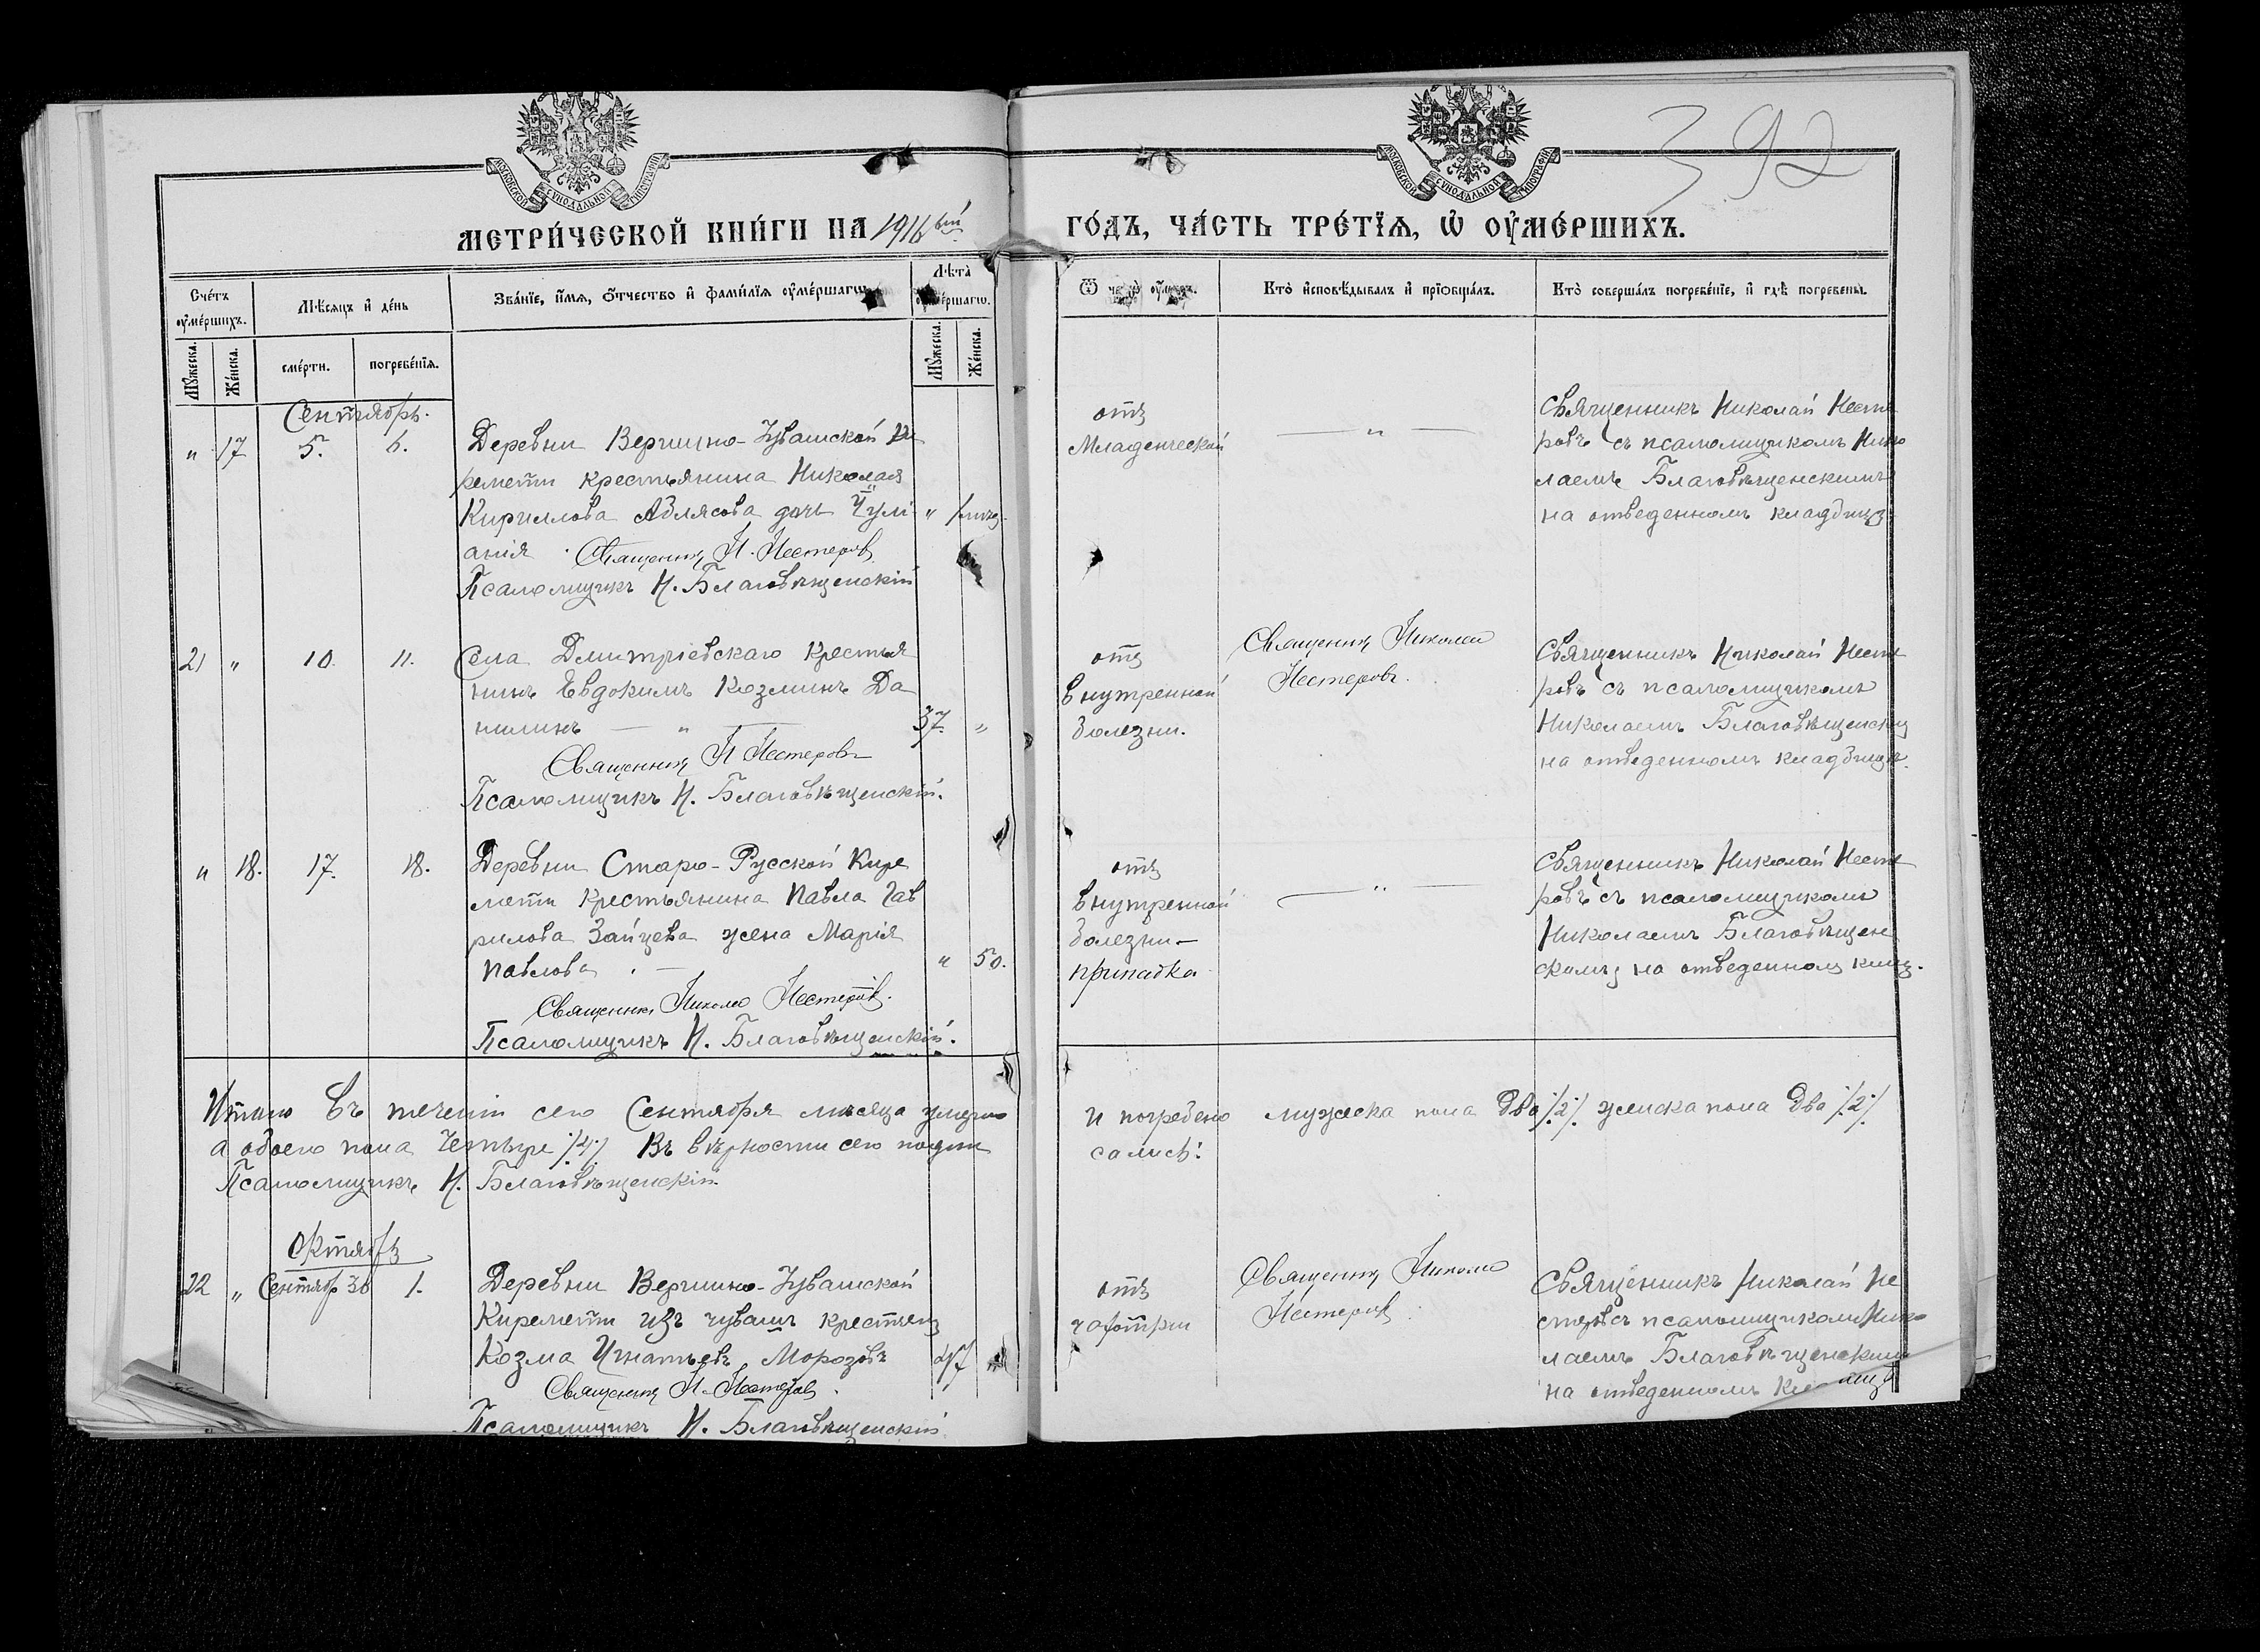 392
МОСКОВСКОЙ СѴНОДАЛЬНОЙ ТИПОГРАФІИ
МОСКОВСКОЙ СѴНОДАЛЬНОЙ ТИПОГРАФІИ
МЕТРИ́ЧЕСКОЙ КНИ́ГИ НА 1916 ый
ГО́ДЪ, ЧА́СТЬ ТРЕ́ТЇѦ, Ѡ҆ ОУ҆МЕ́РШИХЪ.
Сче́тъ оу҆ме́ршихъ.
Мѣ́сѧцъ и҆ де́нь
Зва́нїе, и҆́мѧ, ѻ҆́тчество и҆ фамилїѧ оу҆ме́ршагѡ.
Лѣ́та оу҆ме́ршагѡ.
Ѿ чегѡ̀ оу҆́меръ.
Кто̀ и҆сповѣ́дывалъ и҆ прїѡбща́лъ.
Кто̀ соверша́лъ погребе́нїе, и҆ гдѣ̀ погребены̀.
Мꙋ́жеска.
Же́нска.
сме́рти.
погребе́нїѧ.
Мꙋ́жеска.
Же́нска.
Сентябрь.
" 17 5. 6.
Деревни Вершино-Чувашской Ки
ремети крестьянина Николая
Кириллова Аблясова дочь Іулі-
анія. Священникъ Н. Нестеровъ
Псаломщикъ Н. Благовѣщенскій
"
отъ
Младенческой
— " —
Священникъ Николай Несте
ровъ съ псаломщикомъ Нико
лаемъ Благовѣщенскимъ
на отведенномъ кладбищѣ
21 " 10. 11.
Села Дмитріевскаго Крестья
нинъ Евдокимъ Козминъ Да
нилинъ — " —
Священникъ Н Нестеровъ
Псаломщикъ Н. Благовѣщенскій.
37. "
отъ
внутренней
болезни.
Священникъ Николай
Нестеровъ.
Священникъ Николай Несте
ровъ съ псаломщикомъ
Николаемъ Благовѣщенски
на отведенномъ кладбищѣ.
" 18. 17. 18.
Деревни Старо-Русской Кире
мети Крестьянина Павла Гав
рилова Зайцева жена Марія
Павлова. —
Священникъ Николай Нестеровъ.
Псаломщикъ Н. Благовѣщенскій.
" 50.
отъ
внутренней
болезни—
припадка
— " —
Священникъ Николай Несте
ровъ съ псаломщикомъ
Николаемъ Благовѣщен
скимъ на отведенномъ
Итого въ теченіи сего Сентября мѣсяца умерло и погребено мужеска пола два /2/. женска пола два /2/
а обоего пола Четыре /4/ Въ вѣрности сего подпи
сались:
Псаломщикъ Н. Благовѣщенскій.
Октябрь
22 " Сентябр 30 1.
Деревни Вершино-Чувашской
Киремети изъ чувашъ крестьян
Козма Игнатьевъ Морозовъ
Священникъ Н. Нестеровъ.
Псаломщикъ Н. Благовѣщенскій
47
отъ
чахотки
Священникъ Николай
Нестеровъ.
Священникъ Николай Не
стеровъ съ псаломщикомъ Нико
лаемъ Благовѣщенскимъ
на отведенномъ